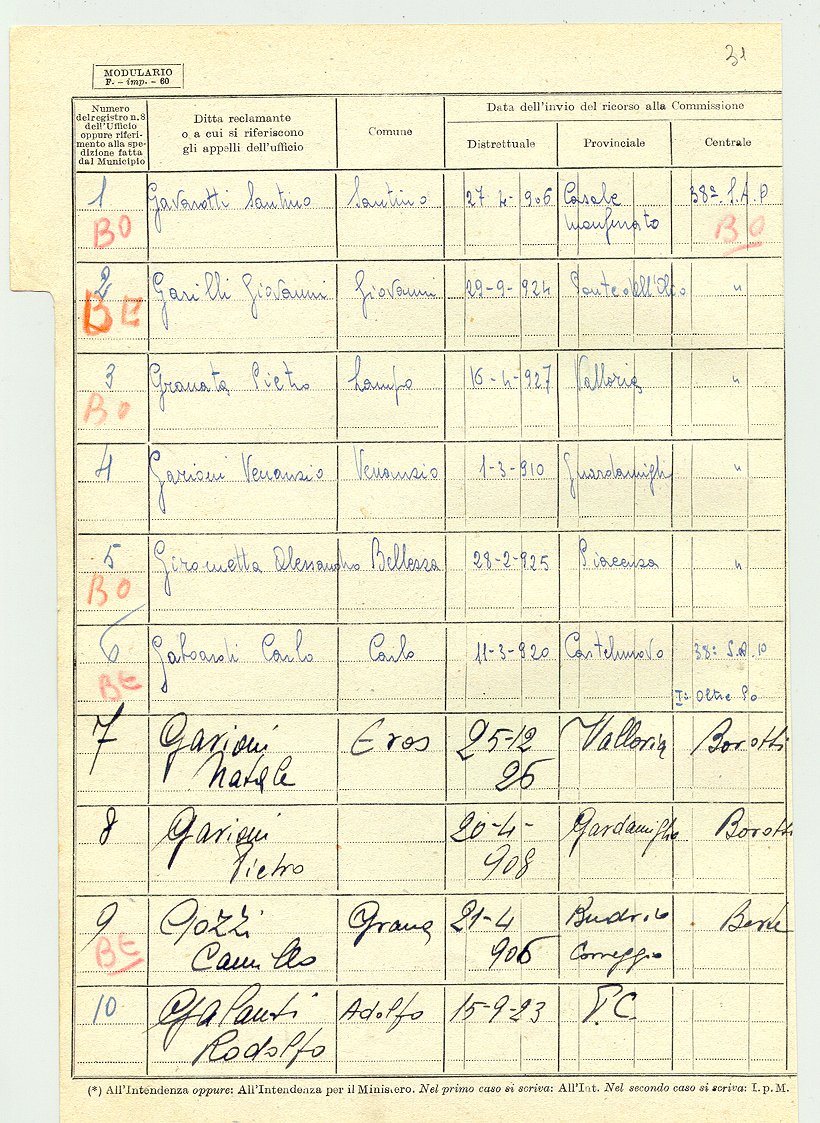 31
MODULARIO
F. - imp. - 60
Numero
del registro n. 8
dell'Ufficio
oppure riferi-
mento alla spe-
dizione fatta
dal Municipio
Ditta reclamante
o a cui si riferiscono
gli appelli dell'ufficio
Comune
Data dell'invio del ricorso alla Commissione
Distrettuale
Provinciale
Centrale
1 Gavarotti Santino Santino 27-4-906 Casale 38ª S.A.P
Monferrato
BO BO
2 Garilli Giovanni Giovanni 29-9-924 Ponte dell'Olio "
BE
3 Granata Pietro Lampo 16-4-927 Valloria "
BO
4 Garioni Venanzio Venanzio 1-3-910 Guardamigli "
5 Girometta Alessandro Bellezza 28-2-925 Piacenza "
BO
6 Gaboardi Carlo Carlo 11-3-920 Castelnuovo 38ª S.A.P
BE Iª Oltre Po
7 Garioni Eros 25-12 Valloria Borotti
Natale 26
8 Garioni 20-4- Gardamiglio Borotti
Pietro 908
9 Gozzi Grana 21-4 Budrio Berté
BE Camillo 906 Correggio
10 Galanti Adolfo 15-9-23 P.C.
Rodolfo
(*) All'Intendenza oppure: All'Intendenza per il Ministero. Nel primo caso si scriva: All'Int. Nel secondo caso si scriva: I. p. M.